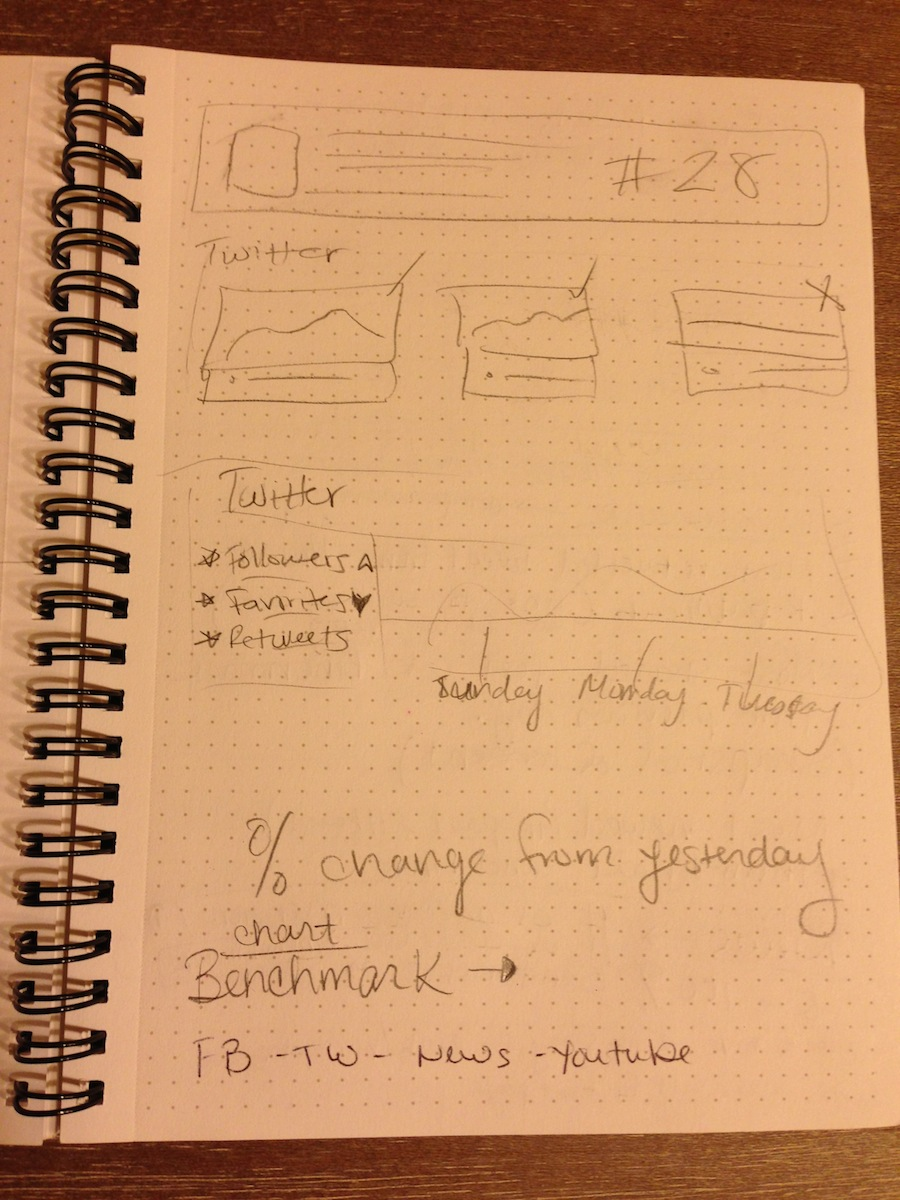 #28
Twitter
Twitter
Followers
Favorites
Retweets
Sunday Monday Tuesday
% change from yesterday
chart
Benchmark →
FB - TW - News - Youtube